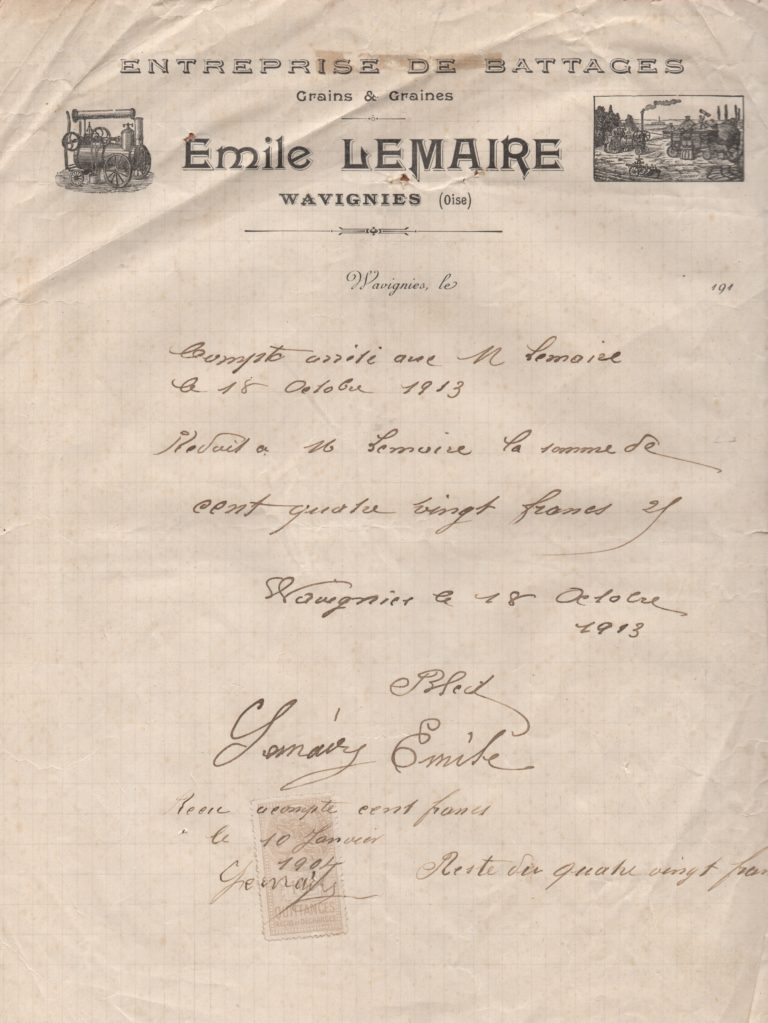 ENTREPRISE DE BATTAGES
Grains & Graines
Émile LEMAIRE
WAVIGNIES (Oise)
Wavignies, le 191
Compte arrêté avec M Lemaire
le 18 Octobre 1913
Redoit a M Lemaire la somme de
cent quatre vingt francs 25
Wavignies le 18 Octobre
1913
Bled
Lemaire Emile
Recu acompte cent francs
le 10 Janvier
1904
Lemaire
Reste du quatre vingt fran
QUITTANCES